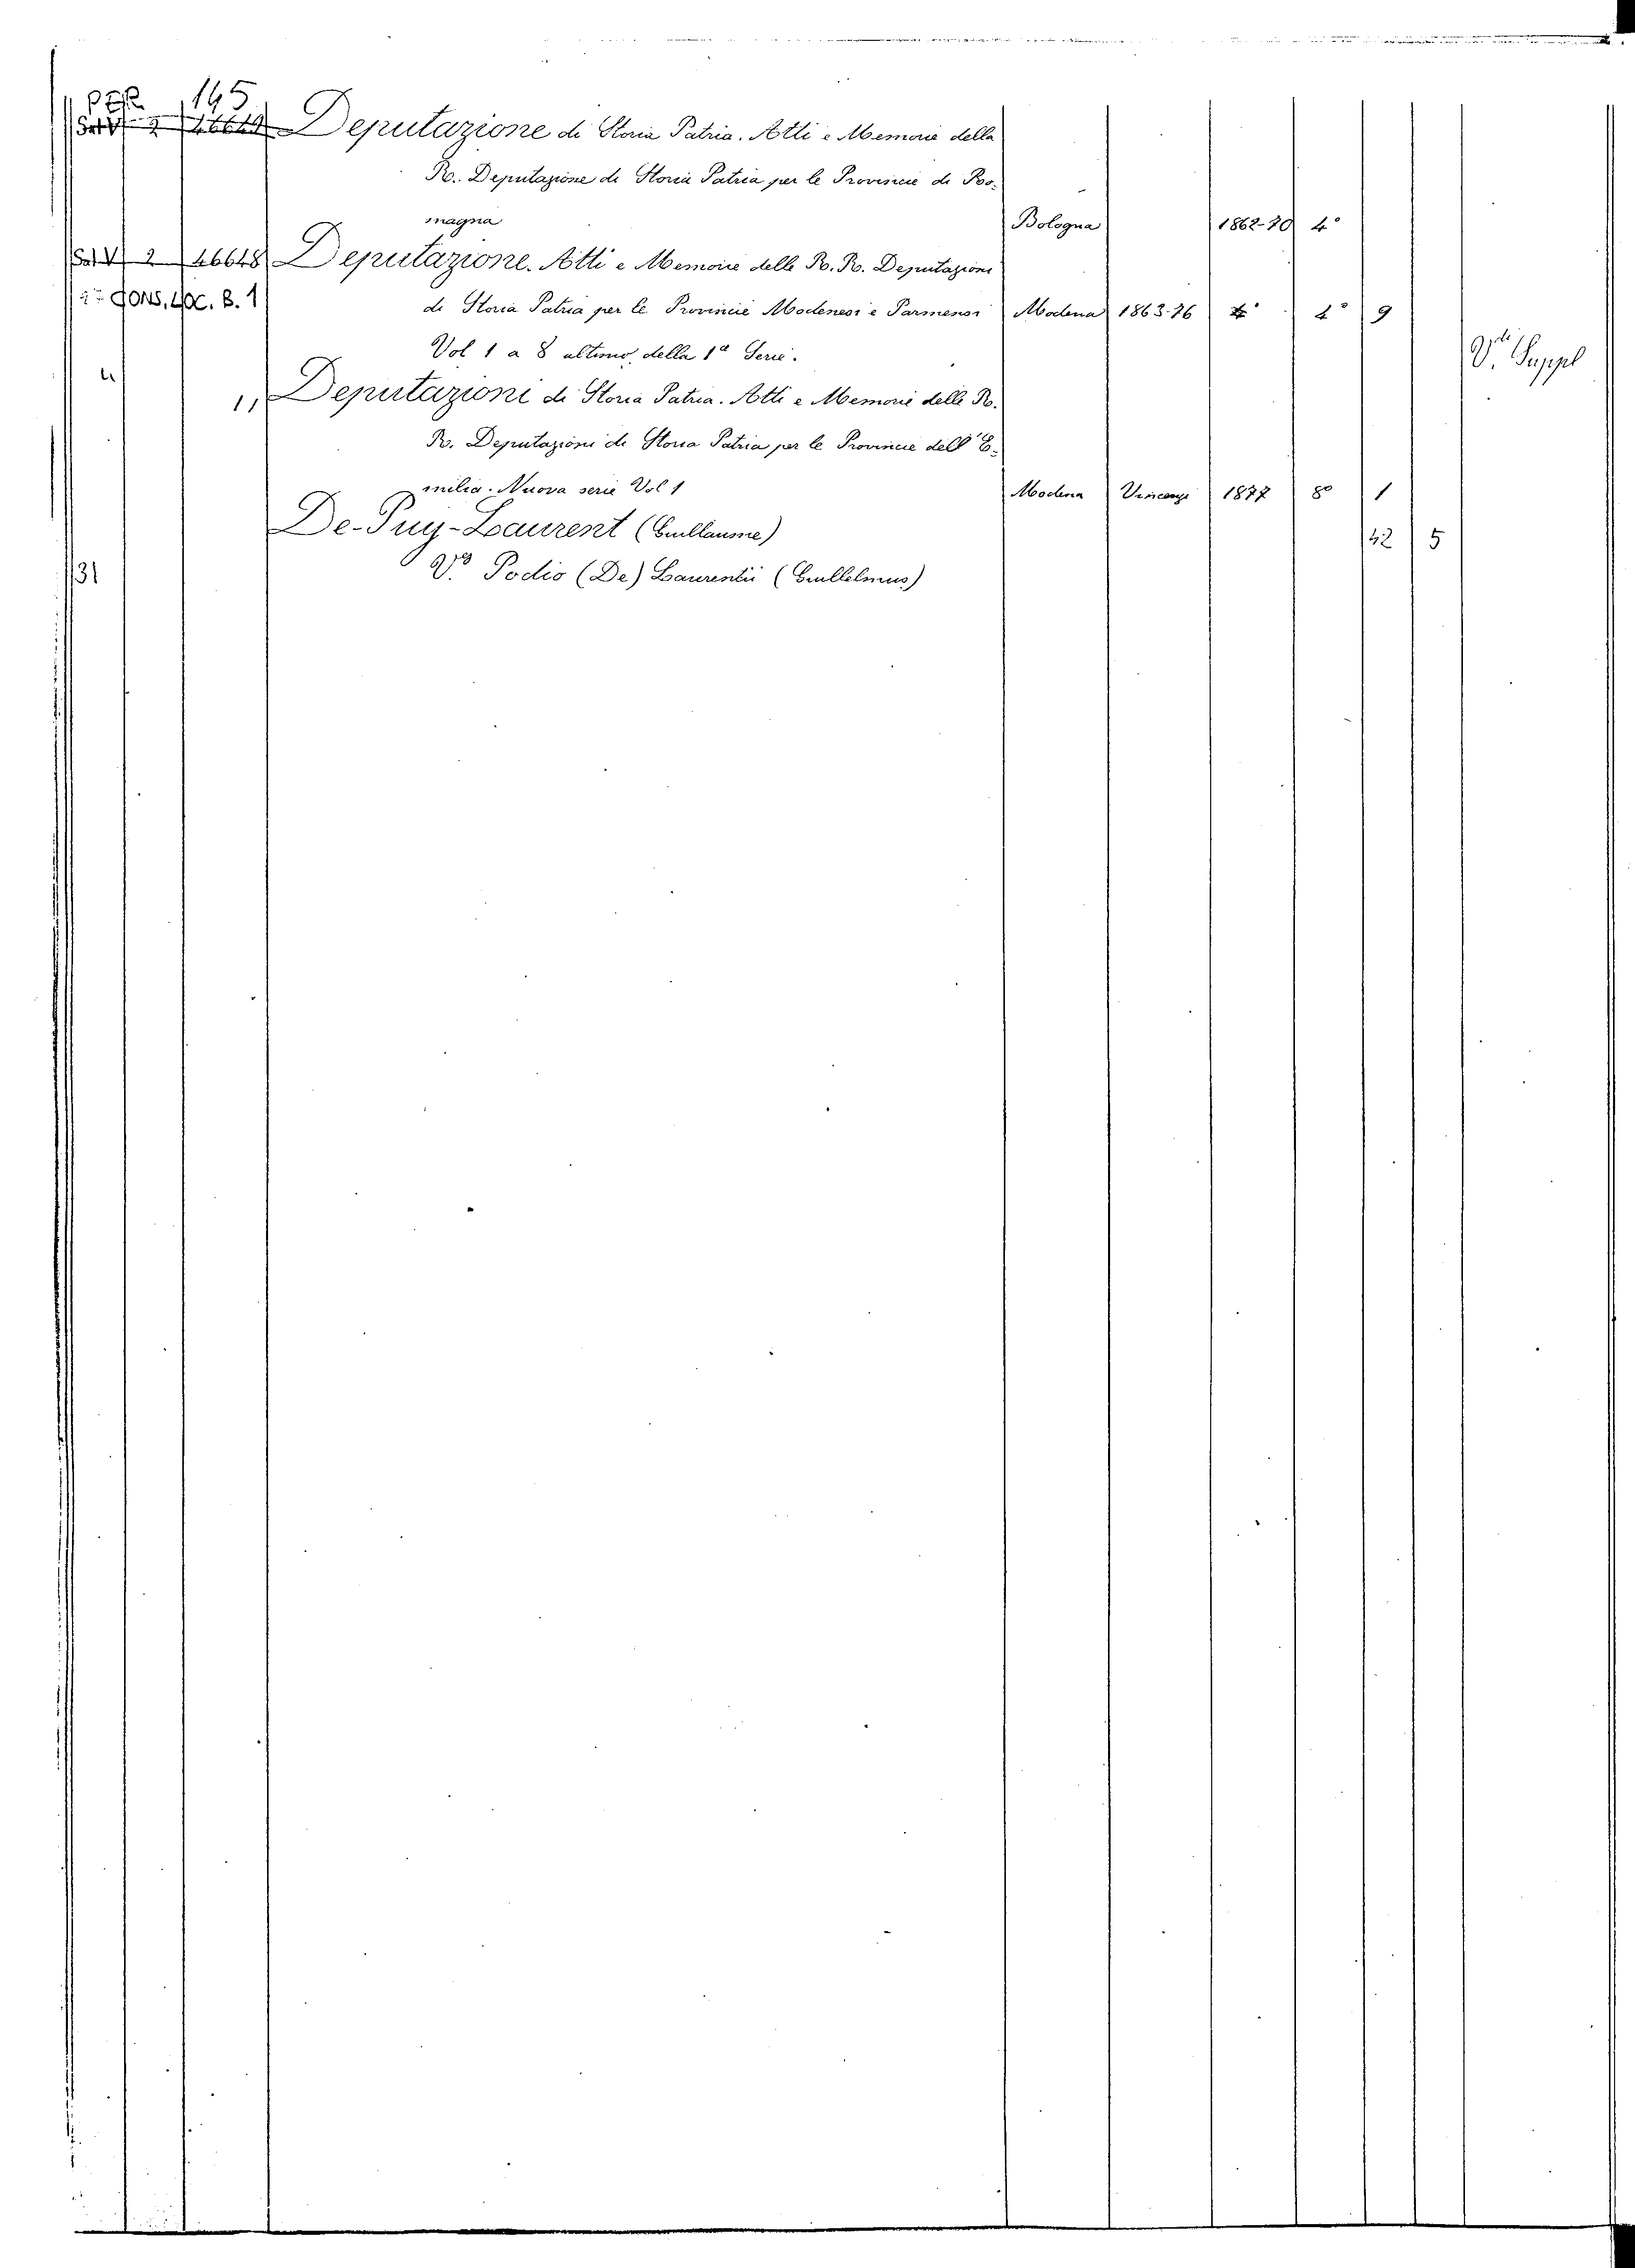 PER 145
Sal V 2 46649 Deputazione di Storia Patria. Atti e Memorie della
R. Deputazione di Storia Patria per le Provincie di Ro-
magna Bologna 1862-70 4°
Sal V 2 46648 Deputazione. Atti e Memorie delle R. R. Deputazioni
CONS. LOC. B. 1 di Storia Patria per le Provincie Modenesi e Parmensi Modena 1863-76 4° 4° 9
Vol 1 a 8 ultimo, della 1a Serie. Vi Suppl
" Deputazioni di Storia Patria. Atti e Memorie delle R.
R. Deputazioni di Storia Patria per le Provincie dell'E-
milia. Nuova serie Vol 1 Modena Vincenzi 1877 8° 1
De-Puy-Laurent (Guillaume) 42 5
31 Vo Podio (De) Laurentii (Guillelmus)